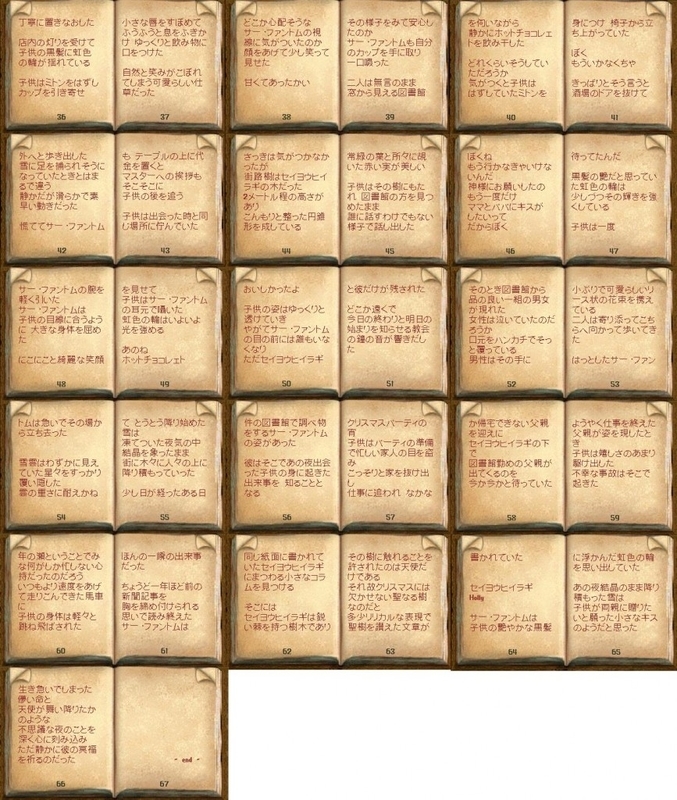 丁寧に置きなおした
店内の灯りを受けて
子供の黒髪に虹色
の輪が揺れている
子供はミトンをはずし
カップを引き寄せ
36
小さな唇をすぼめて
ふうふうと息をふきか
け ゆっくりと飲み物に
口をつけた
自然と笑みがこぼれ
てしまう可愛らしい仕
草だった
37
どこか心配そうな
サー・ファントムの視
線に気がついたのか
顔をあげて少し笑って
見せた
甘くてあったかい
38
その様子をみて安心し
たのか
サー・ファントムも自分
のカップを手に取り
一口啜った
二人は無言のまま
窓から見える図書館
39
を伺いながら
静かにホットチョコレー
トを飲み干した
どれくらいそうしてい
ただろうか
気がつくと子供は
はずしていたミトンを
40
身につけ 椅子から立
ち上がっていた
ぼく
もういかなくちゃ
きっぱりとそう言うと
酒場のドアを抜けて
41
外へと歩き出した
雪に足を捕られそうに
なっていたときとはま
るで違う
静かだが滑らかで素
早い動きだった
慌ててサー・ファントム
42
も テーブルの上に代
金を置くと
マスターへの挨拶も
そこそこに
子供の後を追う
子供は出会った時と同
じ場所に佇んでいた
43
さっきは気がつかなか
ったが
街路樹はセイヨウヒイ
ラギの木だった
2メートル程の高さが
あり
こんもりと整った円錐
形を成している
44
常緑の葉と所々に覗
いた赤い実が美しい
子供はその樹にもた
れ 図書館の方を見つ
めたまま
誰に話すわけでもない
様子で話し出した
45
ぼくね
もう行かなきゃいけな
いんだ
神様にお願いしたの
もう一度だけ
ママとパパにキスが
したいって
だからぼく
46
待ってたんだ
黒髪の艶だと思ってい
た虹色の輪は
少しづつその輝きを強
くしている
子供は一度
47
サー・ファントムの腕を
軽く引いた
サー・ファントムは
子供の目線に合うよう
に 大きな身体を屈め
た
にこにこと綺麗な笑顔
48
を見せて
子供はサー・ファントム
の耳元で囁いた
虹色の輪はいよいよ
光を強める
あのね
ホットチョコレェト
49
おいしかったよ
子供の姿はゆっくりと
透けていき
やがてサー・ファントム
の目の前には誰もいな
くなり
ただセイヨウヒイラギ
50
と彼だけが残された
どこか遠くで
今日の終わりと明日の
始まりを知らせる教会
の鐘の音が響きだし
た
51
そのとき図書館から
品の良い一組の男女
が現れた
女性は泣いていたのだ
ろうか
口元をハンカチでそっ
と覆っている
男性はその手に
52
小ぶりで可愛らしいリ
ース状の花束を携え
ている
二人は寄り添ってこち
らへ向かって歩いてき
た
はっとしたサー・ファン
53
トムは急いでその場か
ら立ち去った
雪雲はわずかに見え
ていた星々をすっかり
覆い隠した
雪の重さに耐えかね
54
て とうとう降り始めた
雪は
凍てついた夜気の中
結晶を象ったまま
街に木々に人々の上に
降り積もっていった
少し日が経ったある日
55
件の図書館で調べ物
をするサー・ファントム
の姿があった
彼はそこであの夜出会
った子供の身に起きた
出来事を 知ることと
なる
56
クリスマスパーティの
宵
子供はパーティの準備
で忙しい家人の目を盗
み
こっそりと家を抜け出
し
仕事に追われ なかな
57
か帰宅できない父親
を迎えに
セイヨウヒイラギの下
で
図書館勤めの父親が
出てくるのを
今か今かと待っていた
58
ようやく仕事を終えた
父親が姿を現したと
き
子供は嬉しさのあまり
駆け出した
不幸な事故はそこで
起きた
59
年の瀬ということでみ
な何がしか忙しない心
持だったのだろう
いつもより速度をあげ
て走りこんできた馬車
に
子供の身体は軽々と
跳ね飛ばされた
60
ほんの一瞬の出来事
だった
ちょうど一年ほど前の
新聞記事を
胸を締め付けられる
思いで読み終えた
サー・ファントムは
61
同じ紙面に書かれて
いたセイヨウヒイラギ
にまつわる小さなコラ
ムを見つける
そこには
セイヨウヒイラギは鋭
い棘を持つ樹木であり
62
その樹に触れることを
許されたのは天使だ
けである
それ故クリスマスには
欠かせない聖なる樹
なのだと
多少リリカルな表現で
聖樹を讃えた文章が
63
書かれていた
セイヨウヒイラギ
Holly
サー・ファントムは
子供の艶やかな黒髪
64
に浮かんだ虹色の輪
を思い出していた
あの夜結晶のまま降り
積もった雪は
子供が両親に贈りた
いと願った小さなキス
のようだと思った
65
生き急いでしまった
儚い命と
天使が舞い降りたか
のような
不思議な夜のことを
深く心に刻み込み
ただ静かに彼の冥福
を祈るのだった
66
- end -
67